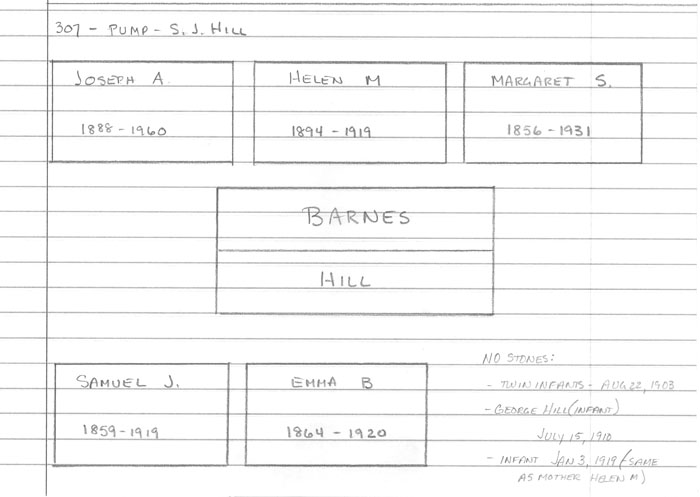 307 - PUMP - S. J. HILL
JOSEPH A. HELEN M MARGARET S.
1888 - 1960 1894 - 1919 1856 - 1931
BARNES
HILL
NO STONES:
SAMUEL J. EMMA B - TWIN INFANTS - AUG 22, 1903
- GEORGE HILL (INFANT)
1859 - 1919 1864 - 1920 JULY 15, 1910
- INFANT JAN 3, 1919 (SAME
AS MOTHER HELEN M)